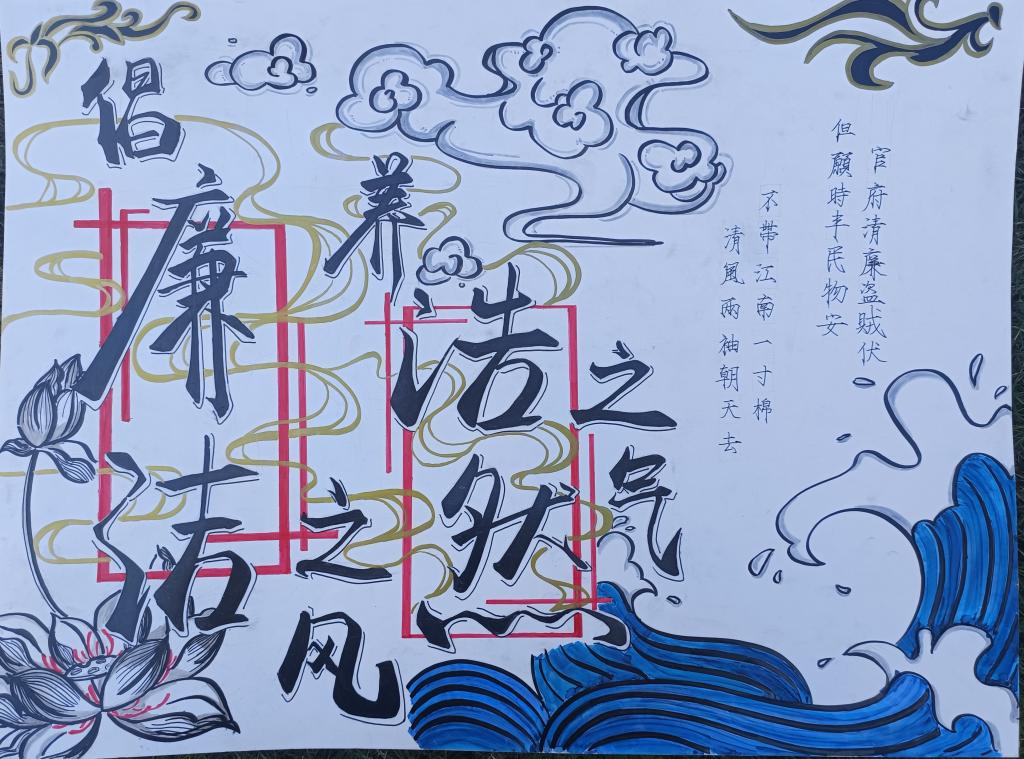 倡廉洁之风
养浩然之气
官府清廉盗賊伏
但願時丰民物安
不帶江南一寸棉
清風兩袖朝天去